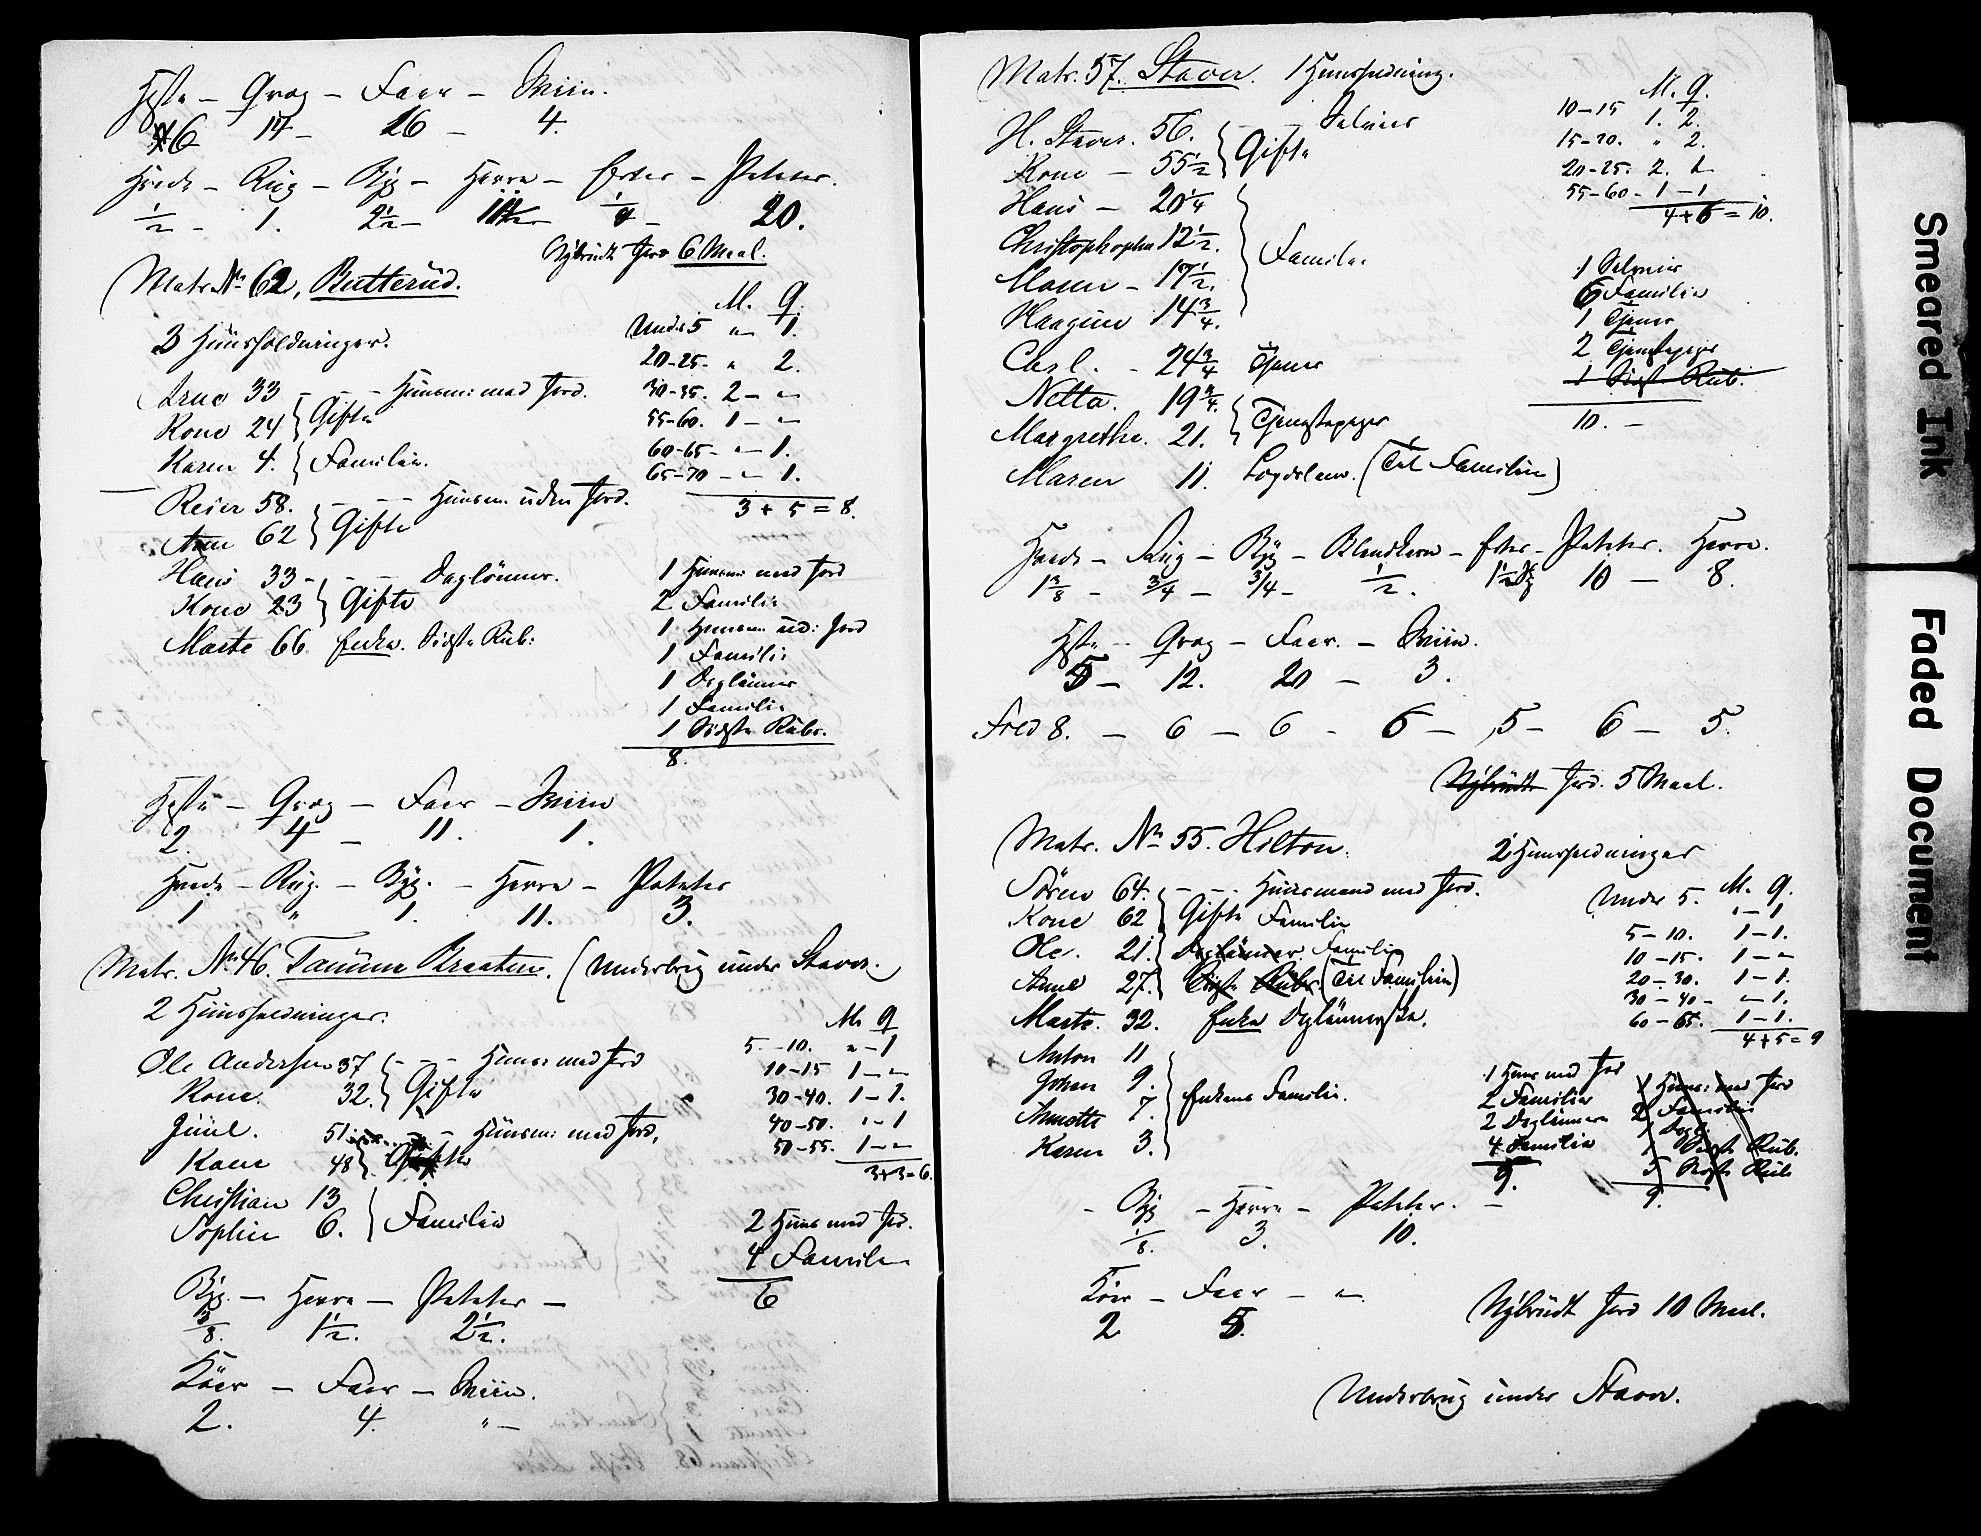 Heste – Qvæg – Faar – Sviin.
6 14 – 26 – 4.
Hvede – Rug – Byg – Havre – Erter – Poteter.
1/2 – 1. 2 1/2 – 1/4 – 20.
Nybrudt Jord 6 Maal.
Matr. No 62, Butterud.
3 Huusholdninger.
M. Q.
Under 5 " 1.
20-25 - " 2.
30-35. 2 – "
55-60. 1 – "
60-65 – " 1.
65-70 – " 1.
3 + 5 = 8.
Arne 33 – – – Huusm: med Jord.
Kone 24 } Gifte
Karen 4. } Familie.
Reier 58. – – – Huusm. uden Jord.
Ane 62 } Gifte
Hans 33 – – – Daglönner.
Kone 23 } Gifte
Marte 66 Enke. Sidste Rub:
1 Huusm med Jord
2 Familie
1 Huusm. ud: Jord
1 Familie
1 Daglönner
1 Familie
1 Sidste Rubr.
8.
Heste – Qvæg – Faar – Sviin
2. 4 – 11. 1.
Hvede – Rug. – Byg. – Havre – Poteter
1 " 1. 11. 3.
Matr. No 46. Tanum Braaten. (Underbrug under Staver.)
2 Huusholdninger.
M. Q
5. -10. " – 1
10-15 1 – "
30-40. 1 – 1.
40-50. " – 1
50-55. 1 – "
3+3=6.
Ole Andersen 37 – – – Huusm med Jord
Kone. 32. } Gifte
Juul. 51 – – Huusm: med Jord.
Kone 48 } Gifte
Christian 13
Sophie 6. } Familie
2 Huus med Jord.
4 Familie
6
Byg – Havre – Poteter –
3/8. 1 1/2. 2 1/2.
Köer – Faar – Sviin.
2. 4. " –
Matr. 57. Staver. 1 Huusholdning.
M. Q.
10-15 1. 2.
15-20. " 2.
20-25. 2. 1
55-60 – 1 – 1
4+6 = 10.
H. Staver. 56. – – Selveier
Kone – 55 1/2 } Gifte
Hans – 20 1/4
Christopher 12 1/2.
Maren – 17 1/2.
Haagine 14 3/4. } Familie
Carl. – 24 3/4 Tjener
Netta. 19 3/4.
Margrethe. 21. } Tjenestepiger
Maren 11. Lægdslem. (Til Familien)
1 Selveier
6 Familie
1 Tjener
2 Tjenestepiger
1 Sidste Rub.
10. –
Hvede – Rug – Byg – Blandkorn – Erter – Poteter. Havre.
1 3/8 – 3/4 – 3/4 – 1/2. 1 1/2 10 – 8.
Heste – Qvæg – Faar. – Sviin.
5 – 12. 20 – 3.
Fold 8. – 6 – 6 – 6 – 5 – 6 – 5.
Nybrudt Jord. 5 Maal.
Matr. No 55. Hilton. 2 Huusholdninger
Sören 64. – – Huusmand med Jord.
Kone 62 } Gifte Familie
Ole. 21. Daglönner Familie
Anne 27. Sidste Rubr. (Til Familien)
Marte. 32. Enke Daglönnerske.
Anton 11
Johan 9.
Annette 7.
Karen 3. } Enkens Familie.
M. Q.
Under 5. " – 1
5 – 10. 1 – 1.
10 – 15. 1 – "
20 – 30. 1 – 1.
30 – 40 – " 1.
60 – 65. 1 – 1.
4+5=9
1 Huus med Jord
2 Familie
2 Daglönnere
4 Familie
9.
1 Huus: med Jord
2 Familie
1 Dagl.
1 Sidste Rub.
9.
– Byg – Havre – Poteter. –
1/8. 3. 10.
Köer – Faar – "
2 5.
Nybrudt Jord 10 Maal.
Underbrug under Staver.
Smeared Ink
Faded Document